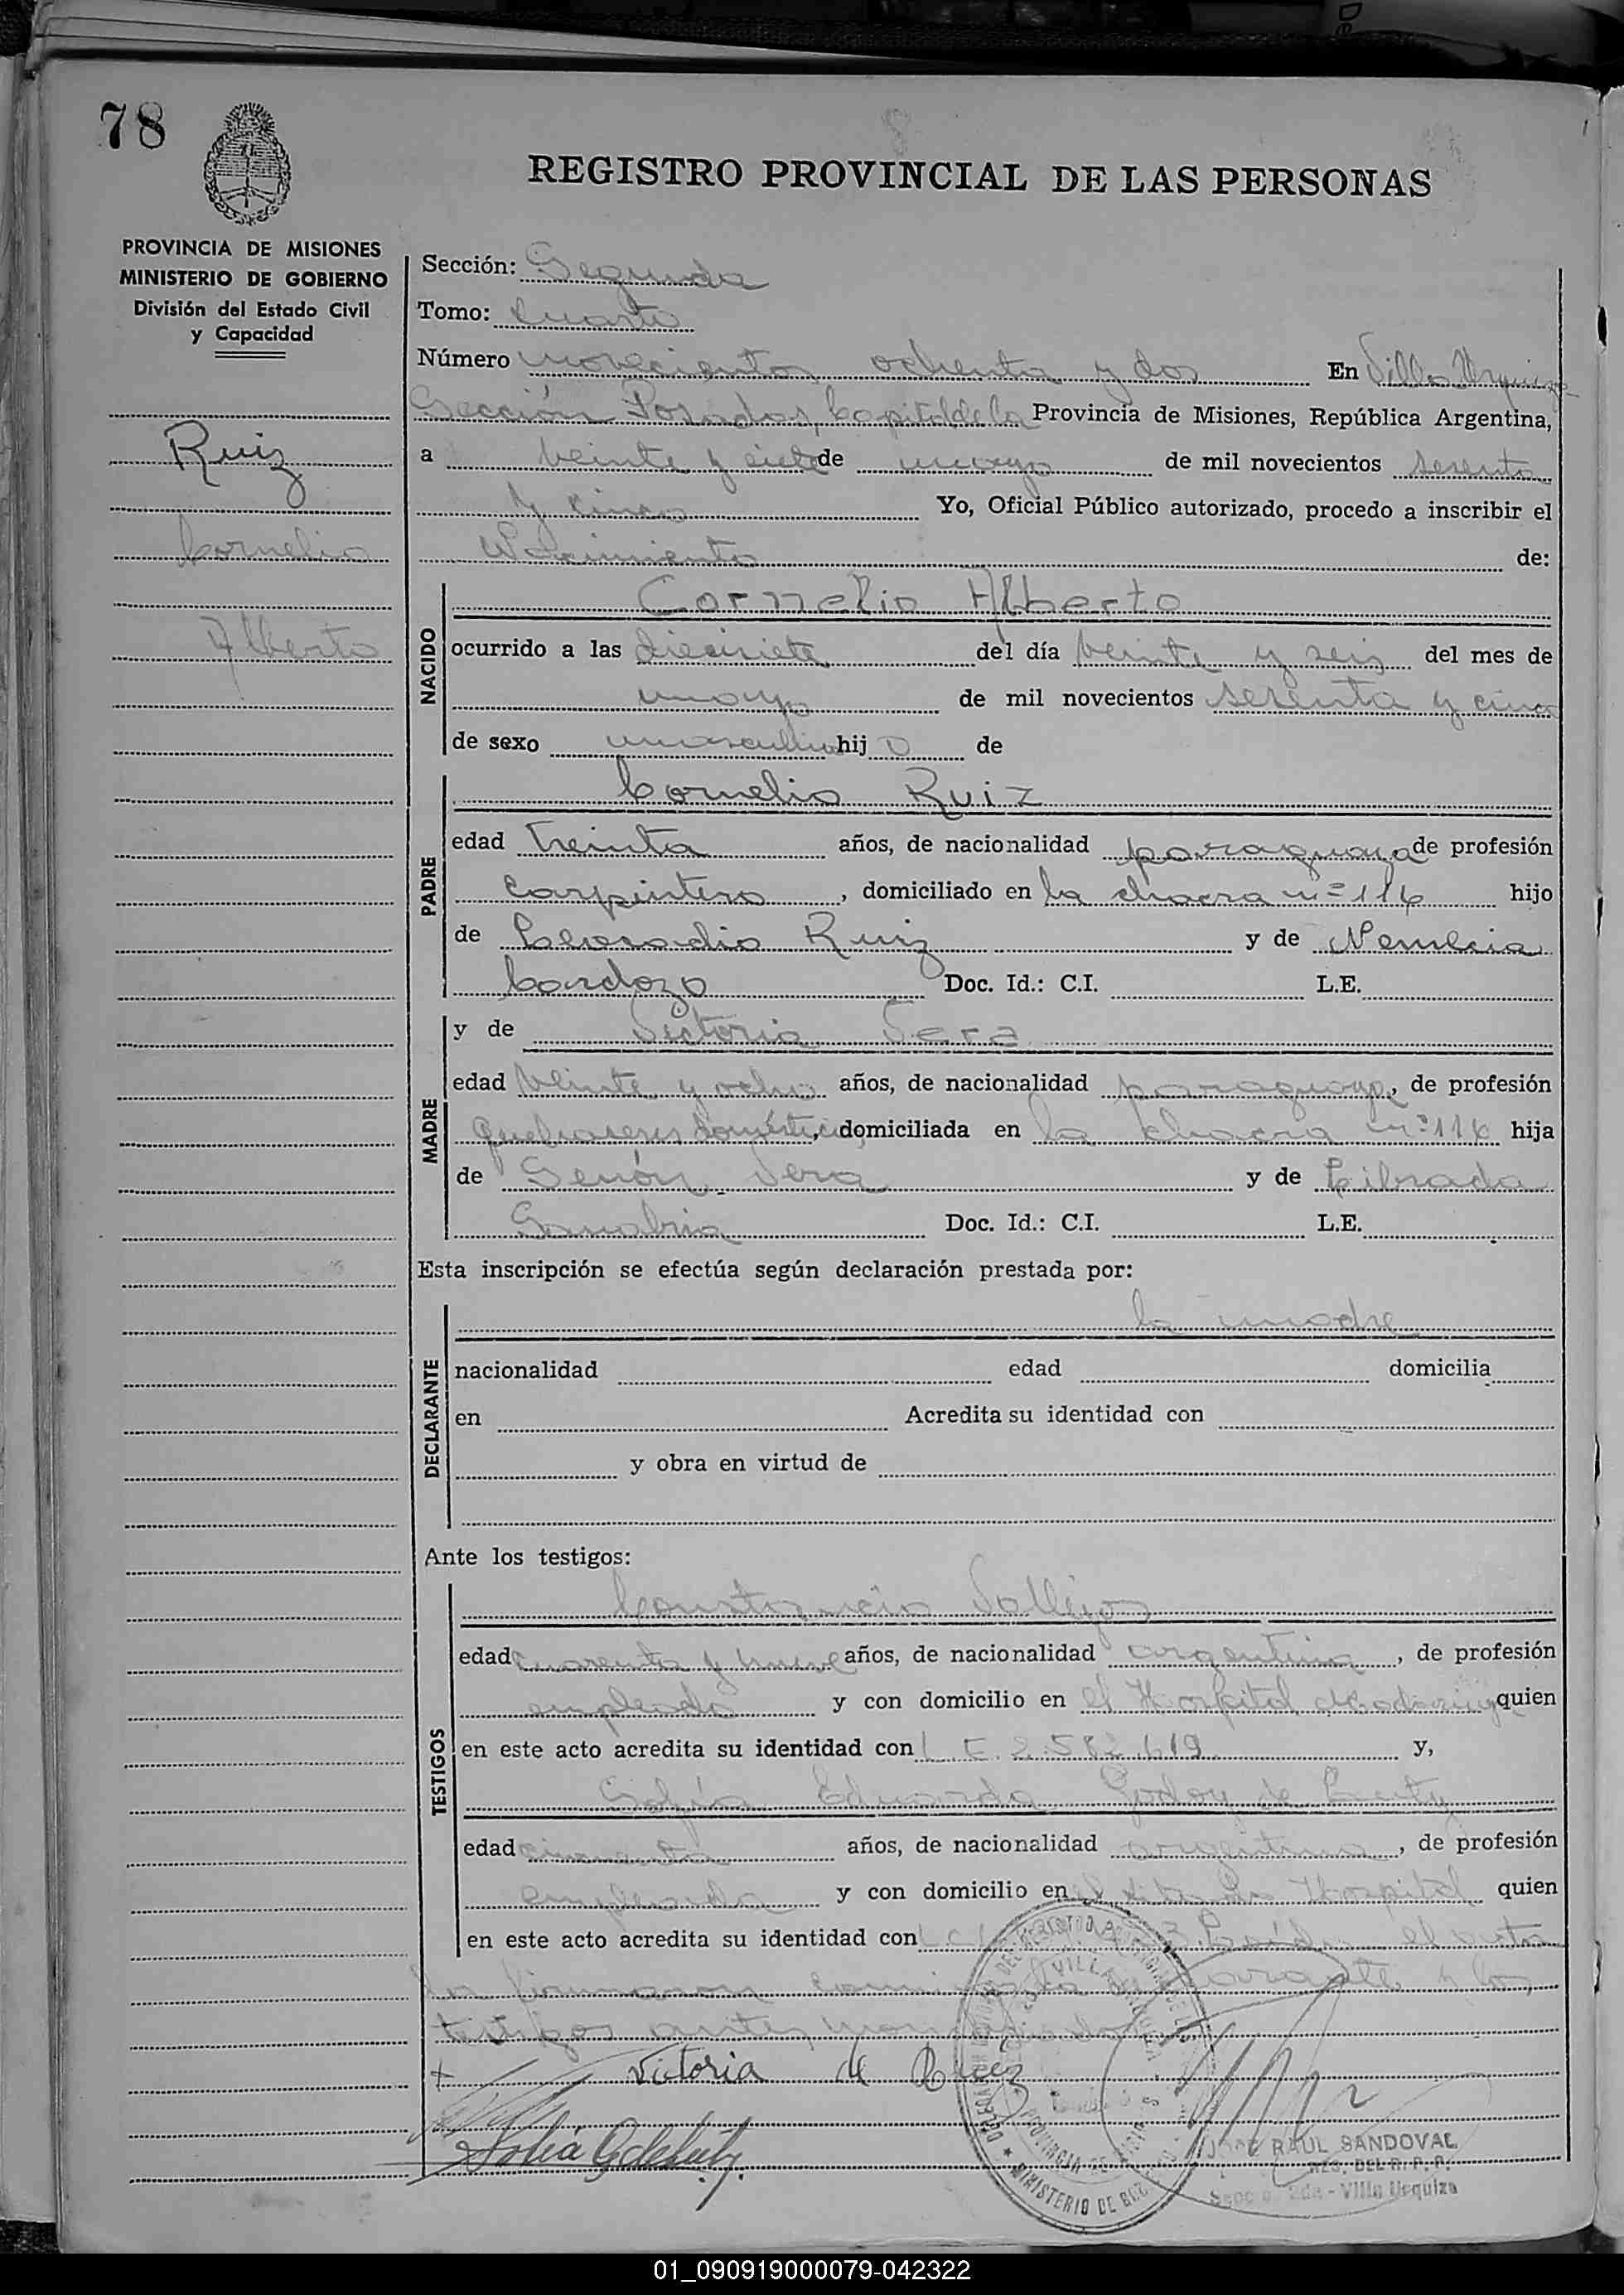 78
REGISTRO PROVINCIAL DE LAS PERSONAS
PROVINCIA DE MISIONES
MINISTERIO DE GOBIERNO
División del Estado Civil
y Capacidad
Ruiz
Cornelio
Alberto
Sección: Segunda
Tomo: Cuarto
Número novecientos ochenta y dos En Villa Urquiza
Sección Posadas, Capital de la Provincia de Misiones, República Argentina,
a veinte y siete de mayo de mil novecientos sesenta
y cinco Yo, Oficial Público autorizado, procedo a inscribir el
Nacimiento de:
NACIDO
Cornelio Alberto
ocurrido a las diecisiete del día veinte y seis del mes de
mayo de mil novecientos sesenta y cinco
de sexo masculino hijo de
PADRE
Cornelio Ruiz
edad treinta años, de nacionalidad paraguaya de profesión
Carpintero, domiciliado en la chacra nº 116 hijo
de Ruiz y de Nemecia
Cardozo Doc. Id.: C.I. L.E.
MADRE
y de Victoria Vera
edad veinte y ocho años, de nacionalidad paraguaya, de profesión
quehaseres domésticos, domiciliada en la chacra nº 116 hija
de Senón Vera y de Librada
Sanabria Doc. Id.: C.I. L.E.
Esta inscripción se efectúa según declaración prestada por:
DECLARANTE
la madre
nacionalidad edad domicilia
en Acredita su identidad con
y obra en virtud de
Ante los testigos:
TESTIGOS
Constancio Vallejos
edad cuarenta y nueve años, de nacionalidad argentina, de profesión
empleado y con domicilio en el Hospital Madariaga quien
en este acto acredita su identidad con L E. 2.582.619 y,
Sofía Eduarda Godoy de
edad cincuenta años, de nacionalidad argentina, de profesión
empleada y con domicilio en el Hospital quien
en este acto acredita su identidad con L C Leída el acta
la firmaron conmigo la y los
testigos antes mencionados
Victoria de Ruiz
JOSE RAUL SANDOVAL
ENC. DEL R. P. P.
Sección 2da - Villa Urquiza
VILLA URQUIZA
PROVINCIA DE MISIONES
MINISTERIO DE GOBIERNO
01_090919000079-042322